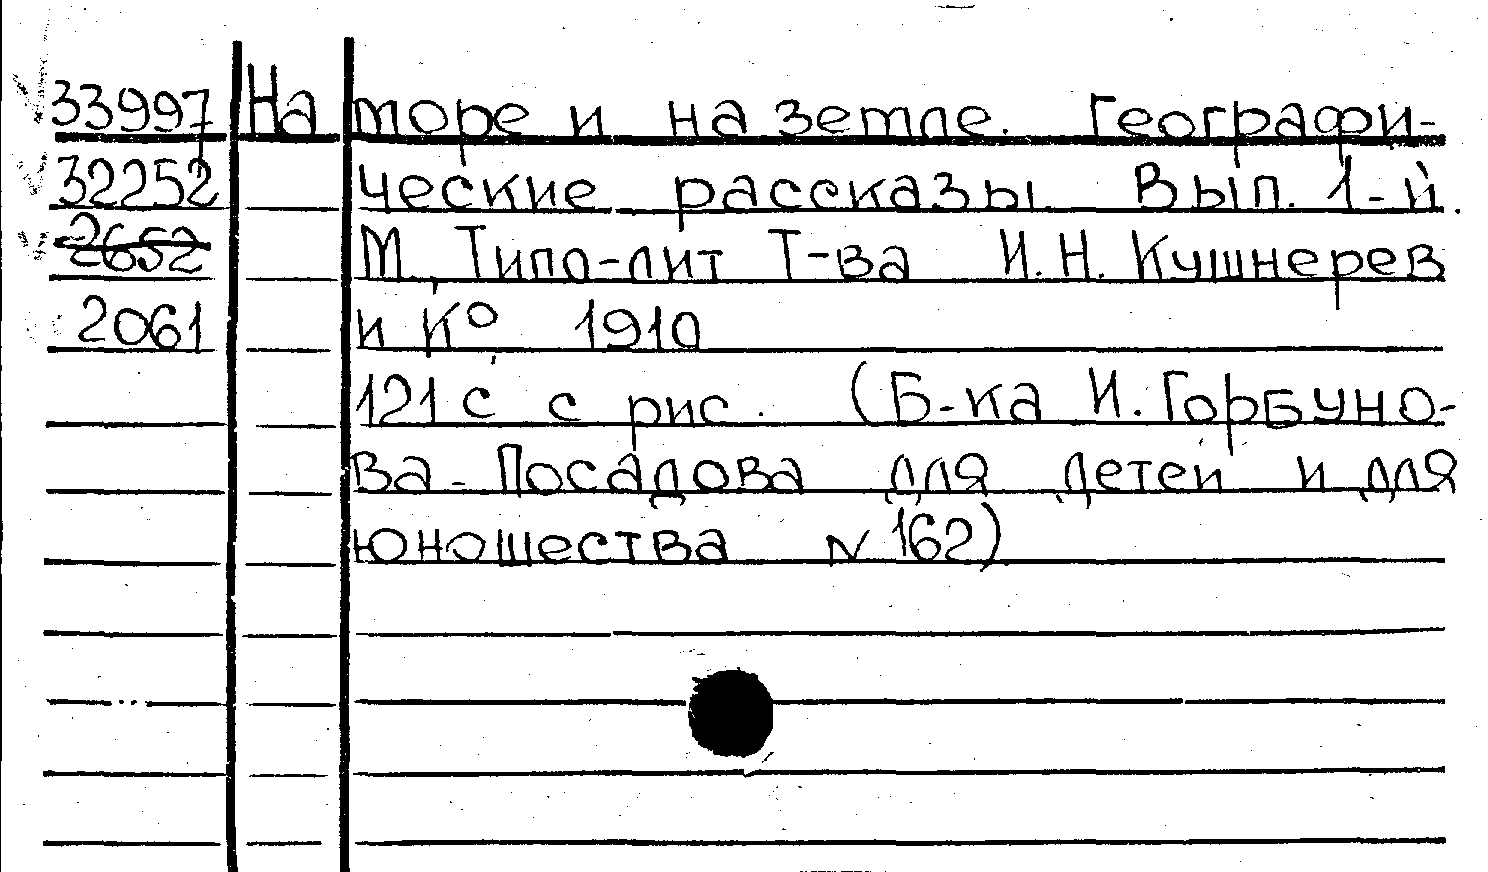 33997 На море и на земле. Географи-
32252 ческие рассказы. Вып. 1-й.
2652 М., Типо-лит Т-ва И.Н. Кушнерев
2061 и К° 1910
121 с. с рис. (Б-ка И. Горбуно-
ва-Посадова для детей и для
юношества N 162)